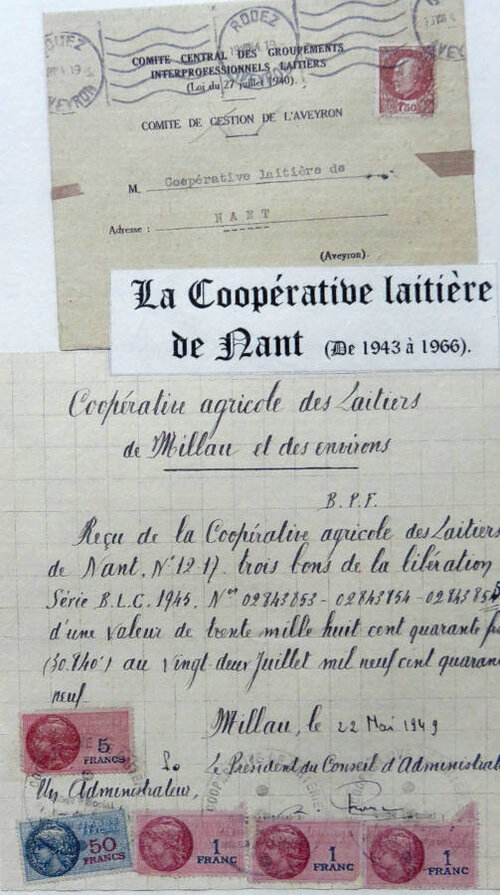 RODEZ
AVEYRON
RODEZ
COMITE CENTRAL DES GROUPEMENTS
INTERPROFESSIONNELS LAITIERS
(Loi du 27 juillet 1940).
1F50
COMITE DE GESTION DE L'AVEYRON
M. Coopérative laitière de
NANT
Adresse :
(Aveyron).
La Coopérative laitière
de Nant (De 1943 à 1966).
Coopérative agricole des Laitiers
de Millau et des environs
B.P.F.
Reçu de la Coopérative agricole des Laitiers
de Nant. N° 12-17. trois bons de la libération
Série B.L.C. 1945. Nos 02843853 - 02843854 - 02843855
d'une valeur de trente mille huit cent quarante
(30.840f) au Vingt-deux Juillet mil neuf cent quaran
neuf.
Millau, le 22 Mai 1949
Le Président du Conseil d'Administrat
Un Administrateur,
5
FRANCS
50
FRANCS
1
FRANC
1
FRANC
1
FRANC